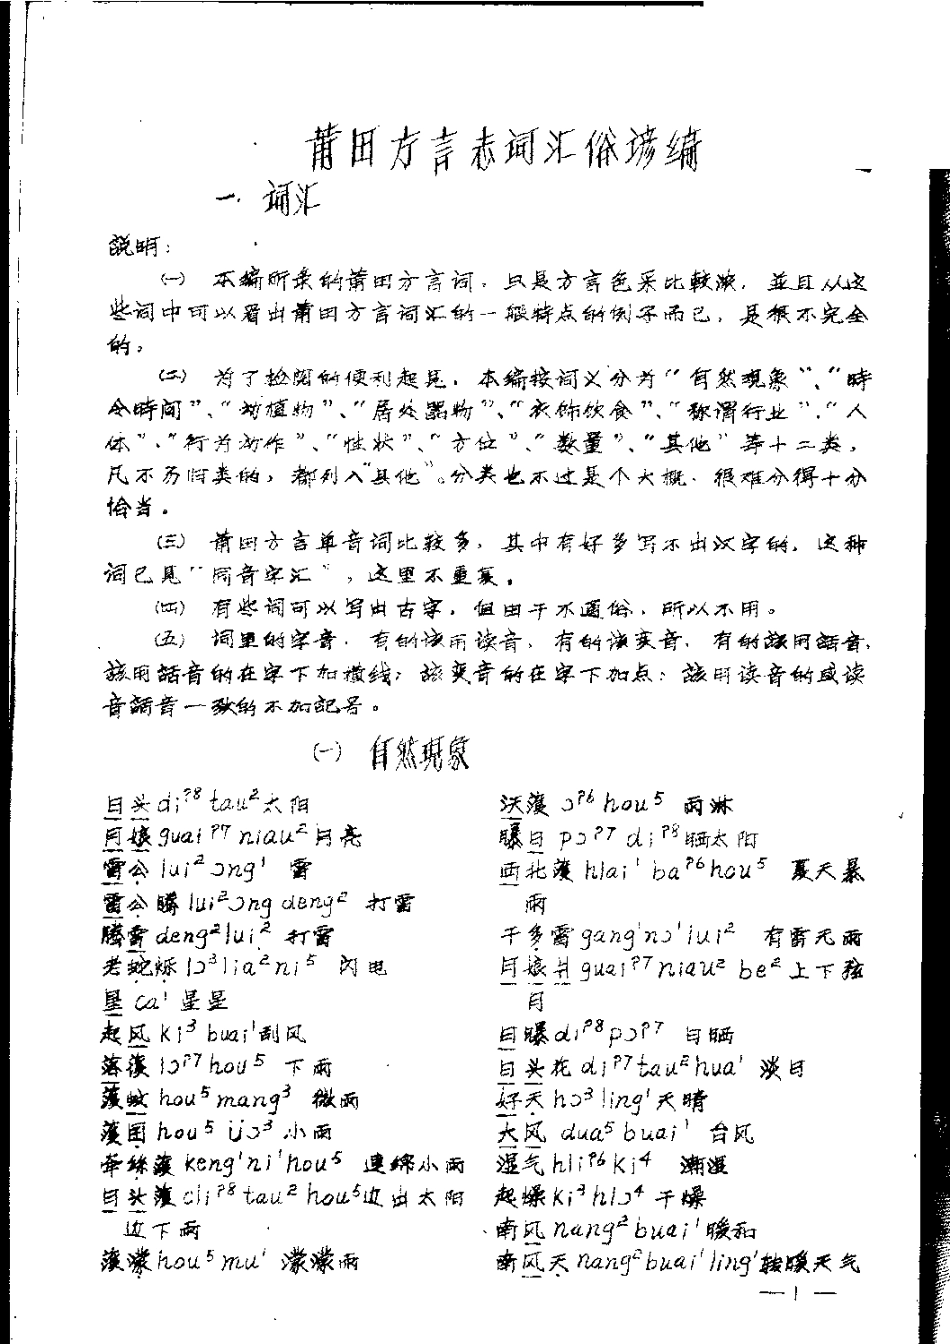 莆田方言志词汇俗谚编
一. 词汇
說明：
㈠ 本编所录的莆田方言词，只是方言色采比較濃，並且从这
些词中可以看出莆田方言词汇的一般特点的例子而已，是很不完全
的，
㈡ 为了检閲的便利起見，本编按词义分为“自然現象”、“時
令時间”、“动植物”、“居处器物”、“衣饰饮食”、“称谓行业”、“人
体”、“行为动作”、“性状”、“方位”、“数量”、“其他”等十二类，
凡不易归类的，都列入“其他”。分类也不过是个大概，很难分得十分
恰当。
㈢ 莆田方言单音词比較多，其中有好多写不出汉字的，这种
词已見“同音字汇”，这里不重复。
㈣ 有些词可以写出古字，但由于不通俗，所以不用。
㈤ 词里的字音，有的该用读音，有的该变音，有的該用話音，
該用話音的在字下加横线；該变音的在字下加点；該用读音的或读
音話音一致的不加記号。
㈠ 自然現象
日头 diʔ8 tau2 太阳
月娘 guaiʔ7 niau2 月亮
雷公 lui2 ɔng1 雷
雷公瞵 lui2 ɔng deng2 打雷
瞵雷 deng2 lui2 打雷
老蛇烁 lɔ3 lia2 ni5 闪电
星 ca1 星星
起风 ki3 buai1 刮风
落 lɔʔ7 hou5 下雨
hou5 mang3 微雨
hou5 ijɔ3 小雨
牵丝 keng1 ni1 hou5 連绵小雨
日头 diʔ8 tau2 hou5 边出太阳
边下雨
hou5 mu1 濛濛雨
沃 ɔʔ6 hou5 雨淋
曝日 pɔʔ7 diʔ8 晒太阳
西北 hlai1 baʔ6 hou5 夏天暴
雨
干多雷 gang1 nɔ1 lui2 有雷无雨
月娘 guaiʔ7 niau2 be2 上下弦
月
日曝 diʔ8 pɔʔ7 日晒
日头花 diʔ7 tau2 hua1 淡日
好天 hɔ3 ling1 天晴
大风 dua5 buai1 台风
湿气 hliʔ6 ki4 潮湿
起燥 ki3 hlɔ4 干燥
南风 nang2 buai1 暖和
南风天 nang2 buai1 ling1 转暖天气
— 1 —